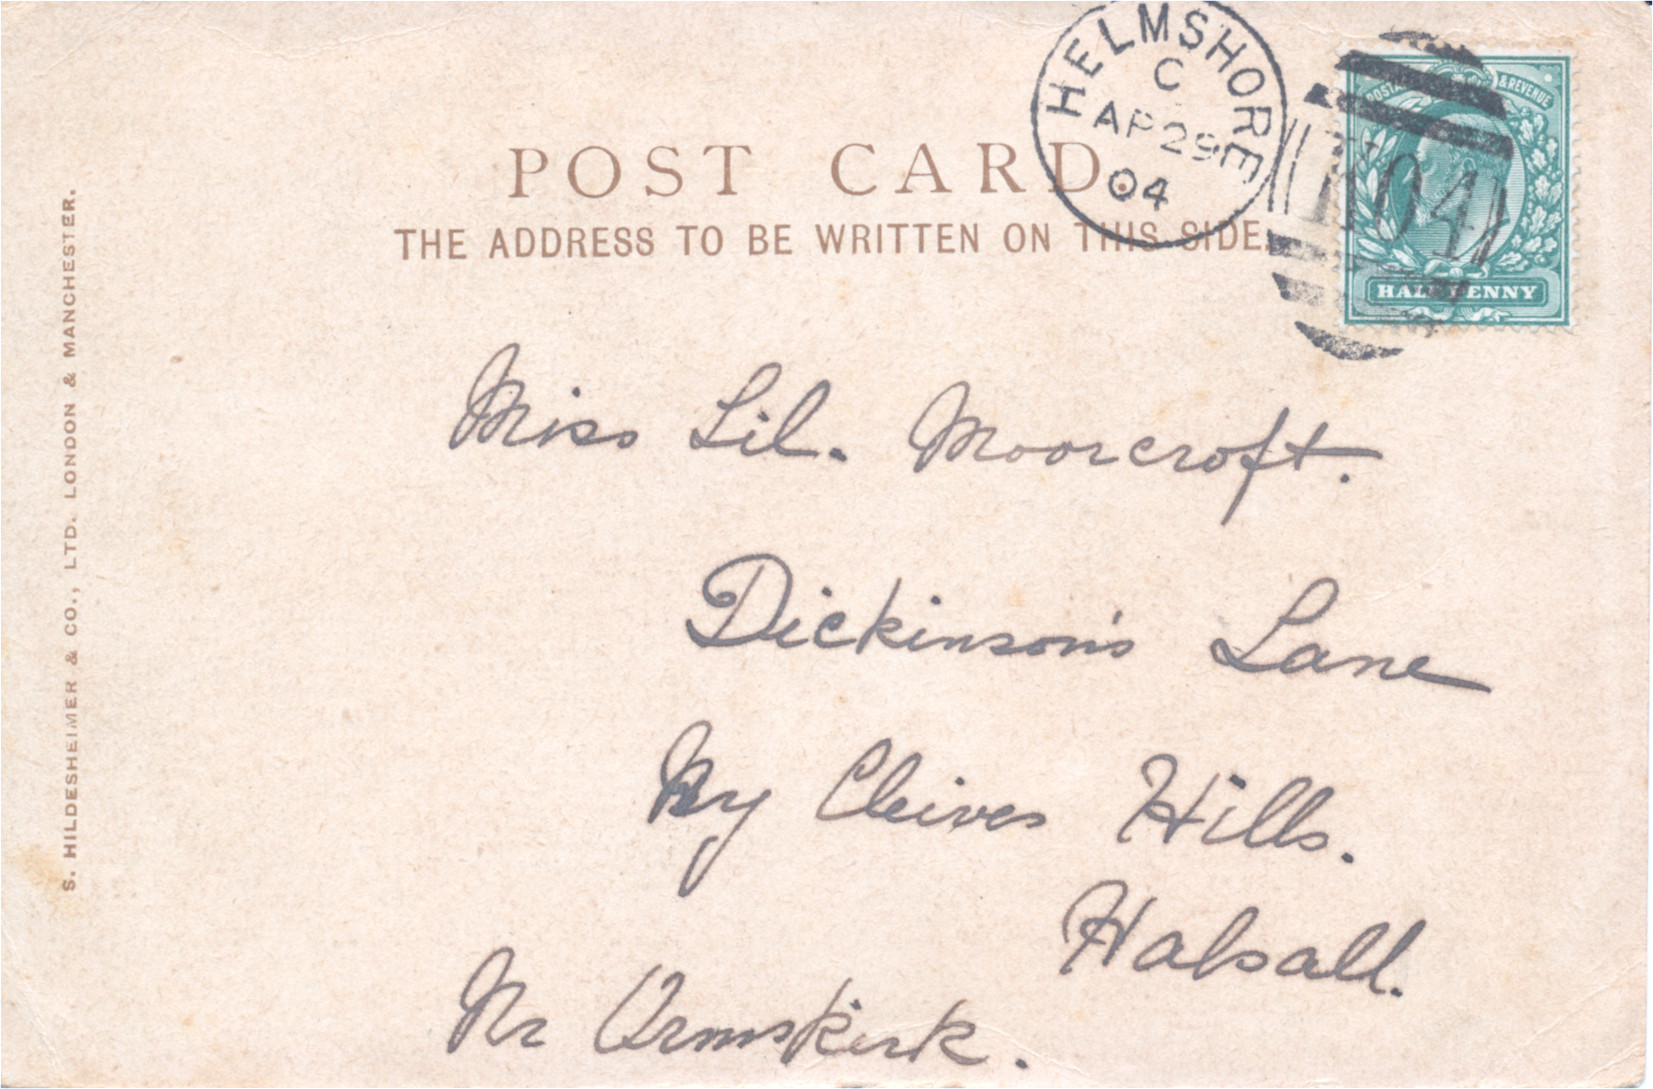 HELMSHORE
C
AP 29
04
POSTA & REVENUE
HALFPENNY
POST CARD.
THE ADDRESS TO BE WRITTEN ON THIS SIDE.
S. HILDESHEIMER & CO., LTD. LONDON & MANCHESTER.
Miss Lil. Moorcroft.
Dickinson's Lane
By Cleives Hills.
Halsall.
Nr Ormskirk.